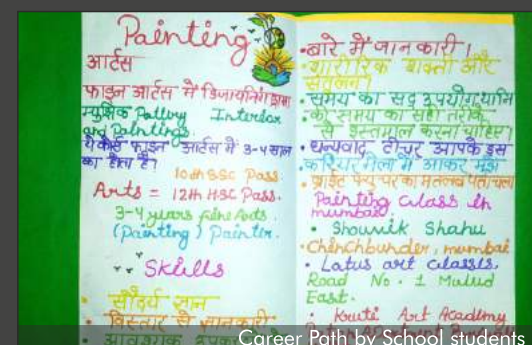 Painting
आर्टस
फाइन आर्टस में डिजायनिंग ड्रामा
म्युझिक Pottery Interior
and Paintings.
ये कोर्स फाइन आर्टस में 3-4 साल
का होता है।
10th SSC Pass.
Arts = 12th HSC Pass.
3-4 years fine Arts
(Painting) Painter.
Skills
सौंदर्य ज्ञान
विस्तार से जानकारी
आवश्यक
• बारे में जानकारी।
• शारीरिक शक्ती और
संतुलन।
• समय का सदुउपयोग यानि
• की समय का सही तरीके
से इस्तमाल करना चाहिए।
• धन्यवाद टीचर आपके इस
• करियर मेला में आकर मुझे
• ब्राईट फ्युचर का मतलब पता चला
Painting class in
mumbai
• Shouvik Shahu
• Chinchbunder, mumbai
• Lotus art classes.
Road No. 1 Mulud
East.
• Kruti Art Academy
Career Path by School students